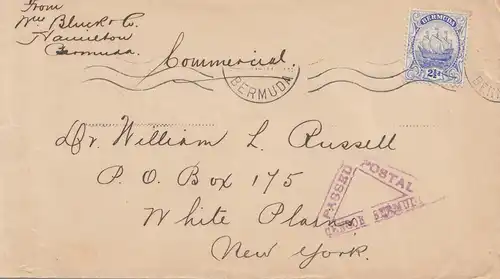 From
Wm Bluck & Co.
Hamilton
Bermuda.
Commercial.
BERMUDA
BERMUDA
2½d
Dr. William L. Russell
P. O. Box 175
White Plains,
New York.
PASSED POSTAL CENSOR BERMUDA